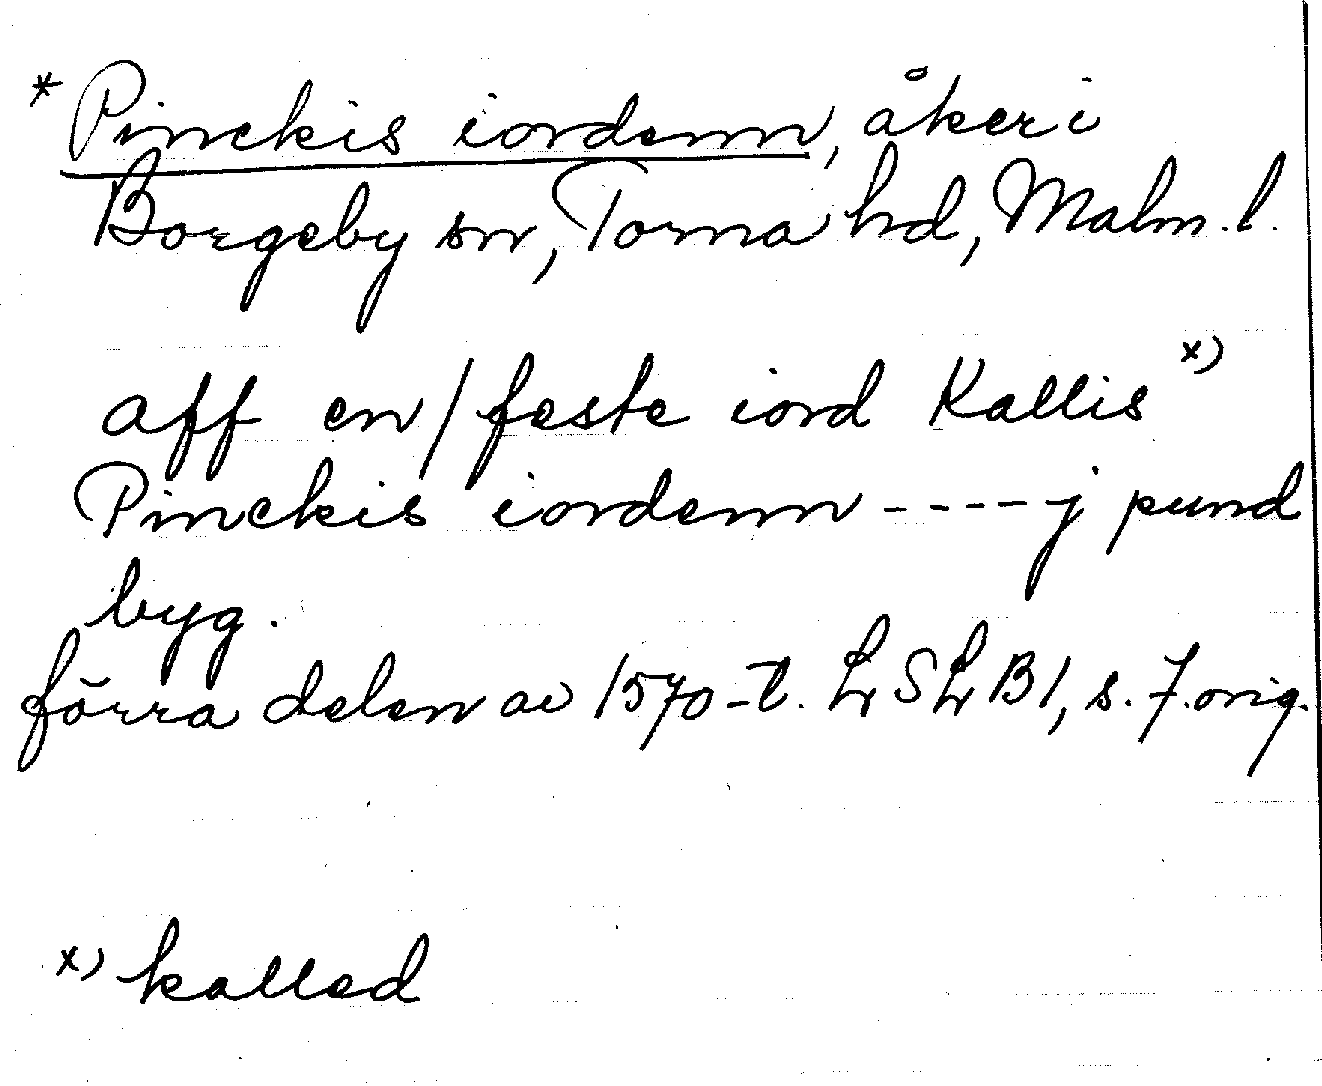 * Pinckis iordenn, åker i
Borgeby sn, Torna hd, Malm. l.
aff en / feste iord Kallis x)
Pinckis iordenn ---- j pund
byg.
förra delen av 1570-t. LSLB1, s. 7. orig.
x) kallad